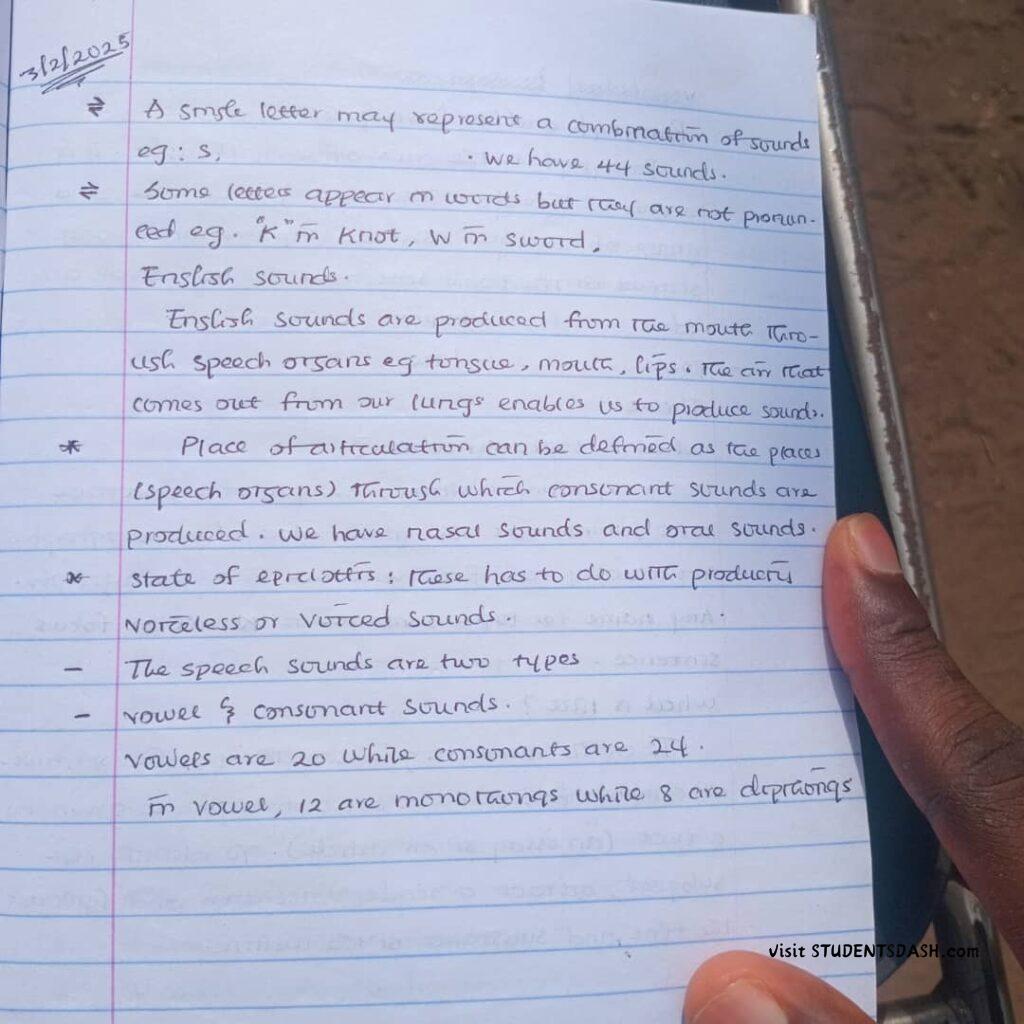 3/2/2025
⇌ A single letter may represent a combination of sounds
eg: s, . We have 44 sounds.
⇌ Some letters appear in words but they are not pronun-
ced eg. "K" in Knot, W in sword,
English sounds.
English sounds are produced from the mouth thro-
ugh speech organs eg tongue, mouth, lips. The air that
comes out from our lungs enables us to produce sounds.
* Place of articulation can be defined as the places
(speech organs) through which consonant sounds are
produced. We have nasal sounds and oral sounds.
* State of : these has to do with producing
voiceless or voiced sounds.
- The speech sounds are two types.
- vowel & consonant sounds.
vowels are 20 while consonants are 24.
in vowel, 12 are monothongs while 8 are dipthongs
Visit STUDENTSDASH.com